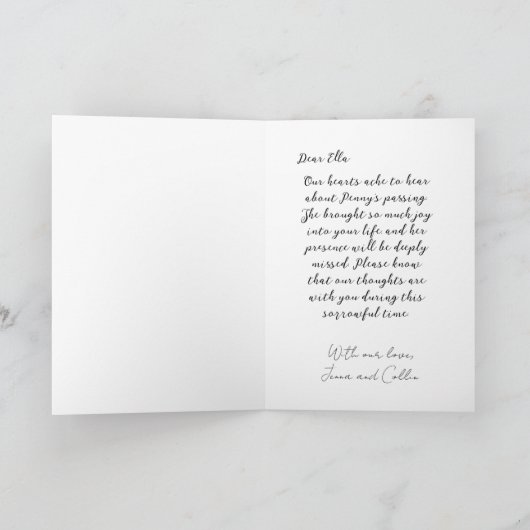 Dear Ella
Our hearts ache to hear
about Penny's passing.
She brought so much joy
into your life, and her
presence will be deeply
missed. Please know
that our thoughts are
with you during this
sorrowful time.
With our love,
Jenna and Collin